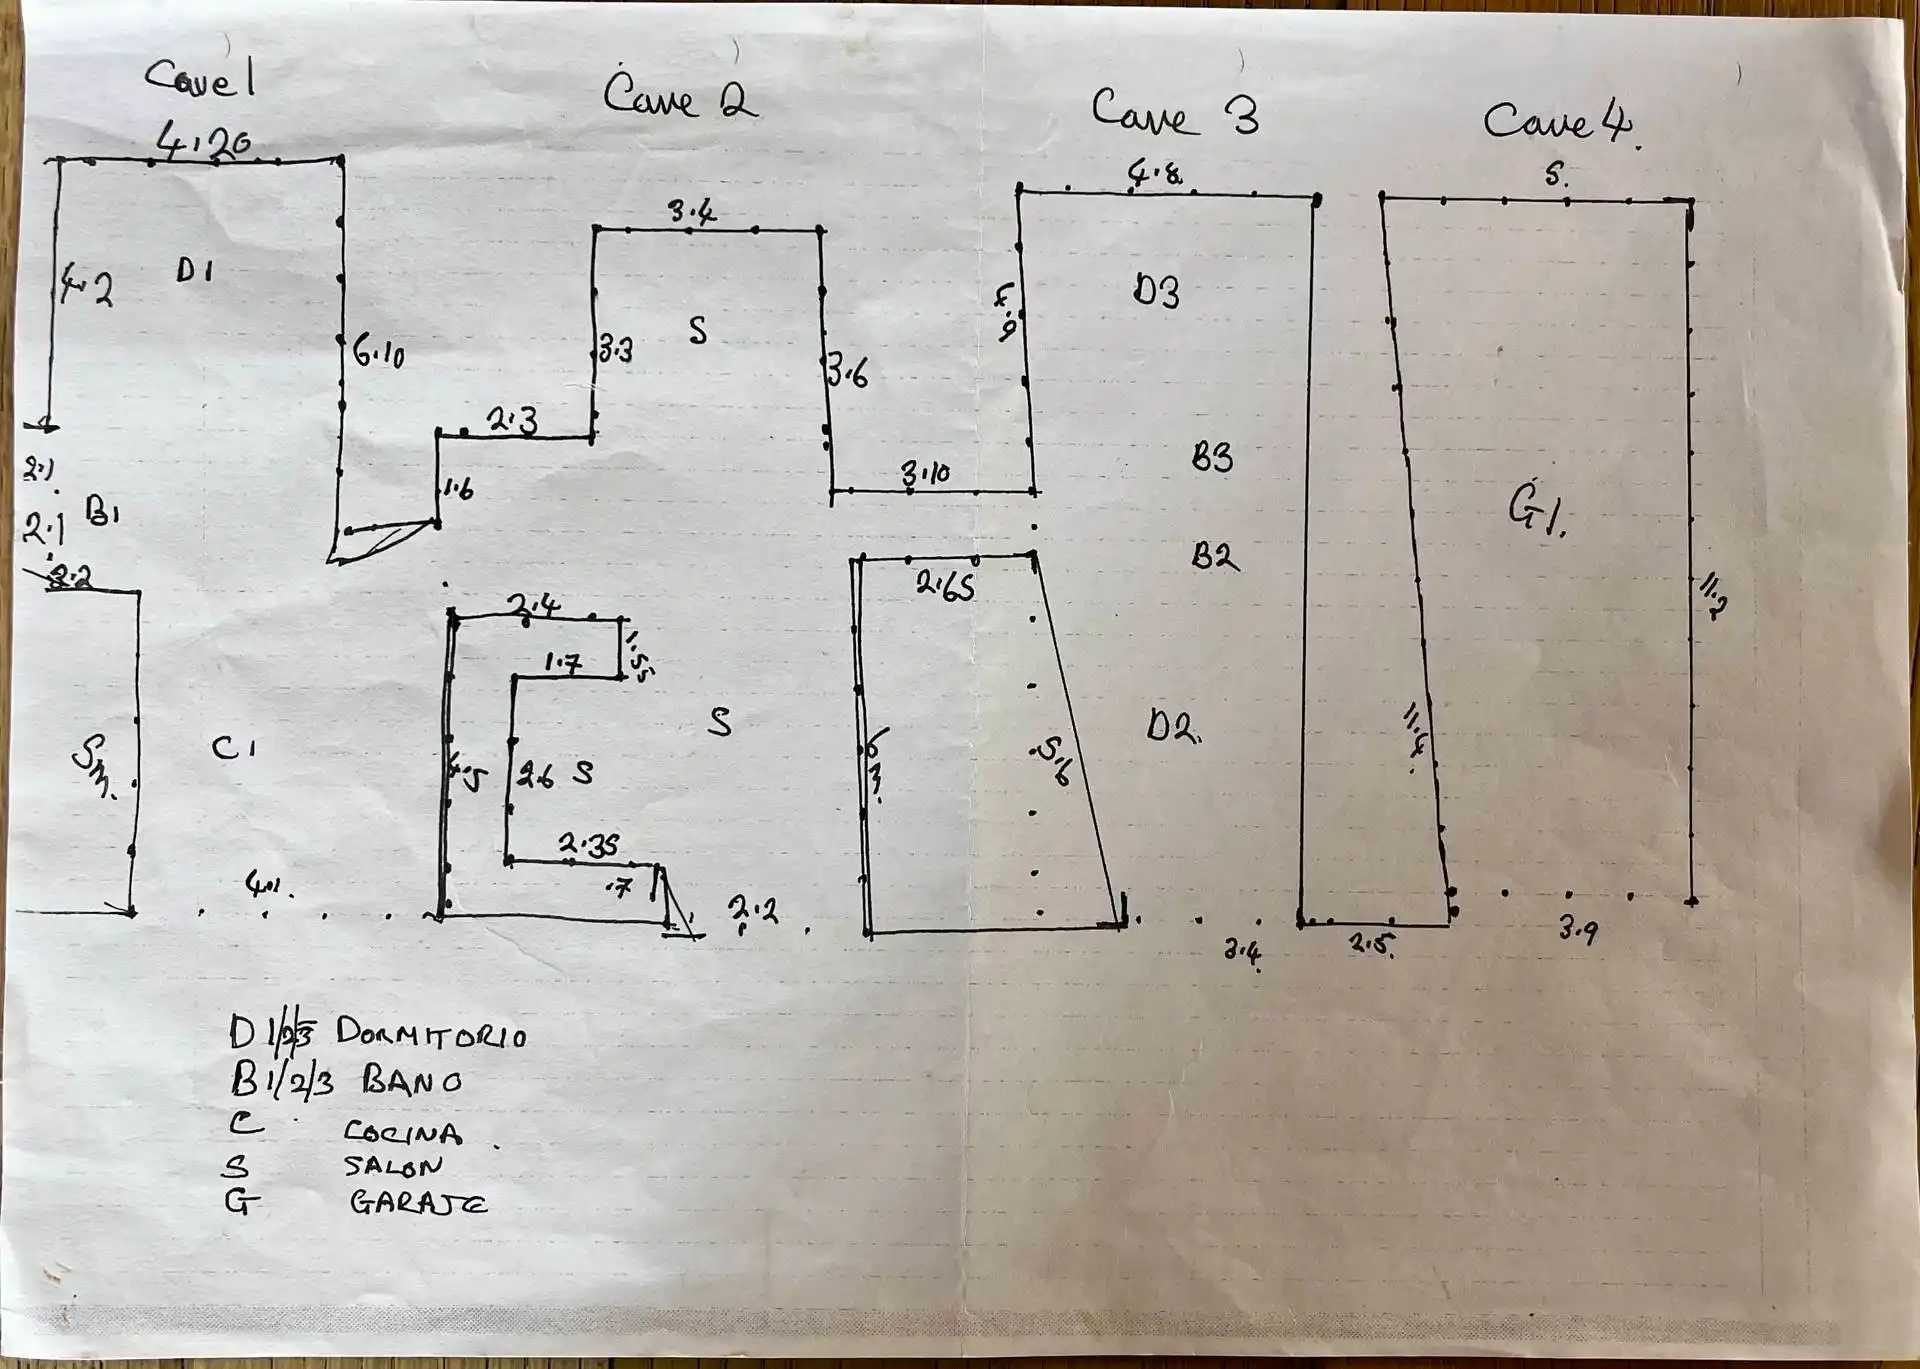 Cave 1
Cave 2
Cave 3
Cave 4.
4.20
3.4
4.8
5.
4.2
D1
6.10
3.3
S
3.6
4.9
D3
2.3
1.6
3.10
B3
G1.
2.1
2.1
B1
2.2
B2
11.2
2.4
1.5
1.7
2.65
5m.
C1
4.5
2.6
S
S
6m.
5.6
D2.
11.4
2.35
.7
4.1.
2.2
3.4.
2.5.
3.9
D 1/2/3 DORMITORIO
B 1/2/3 BANO
C COCINA.
S SALON
G GARAJE